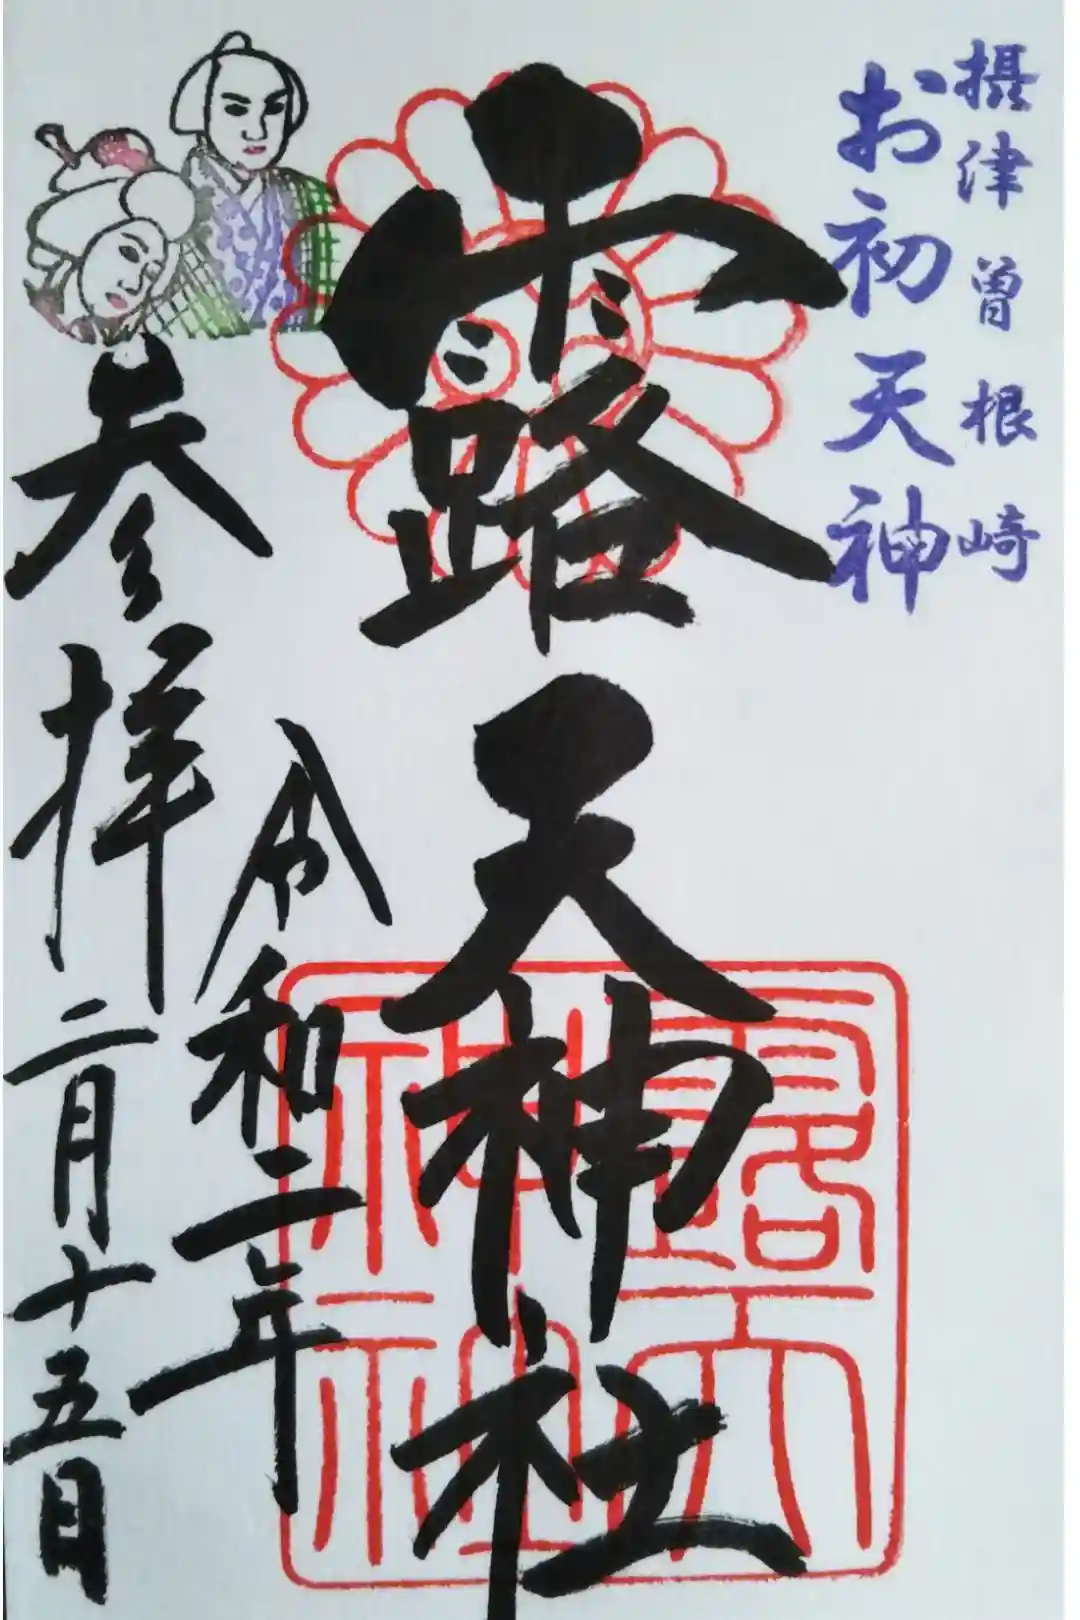 摂津曽根崎
お初天神
露天神社
露天神社
令和二年
参拝二月十五日